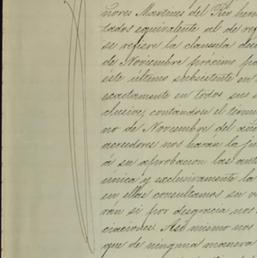 ñores Martinez del Rio herm
tados equivalente al de re
se refiere la clausula dec
de Noviembre proximo pa
este último subsistente en
exactamente en todos sus
clusive, contandose el termi
no de Noviembre del añ
acreedores nos harán la ju
á su aprobacion las ante
única y exclusivamente la
en ellas consultamos su ve
rán si por desgracia nos
ciaciones. Asi mismo nos
que de ninguna manera